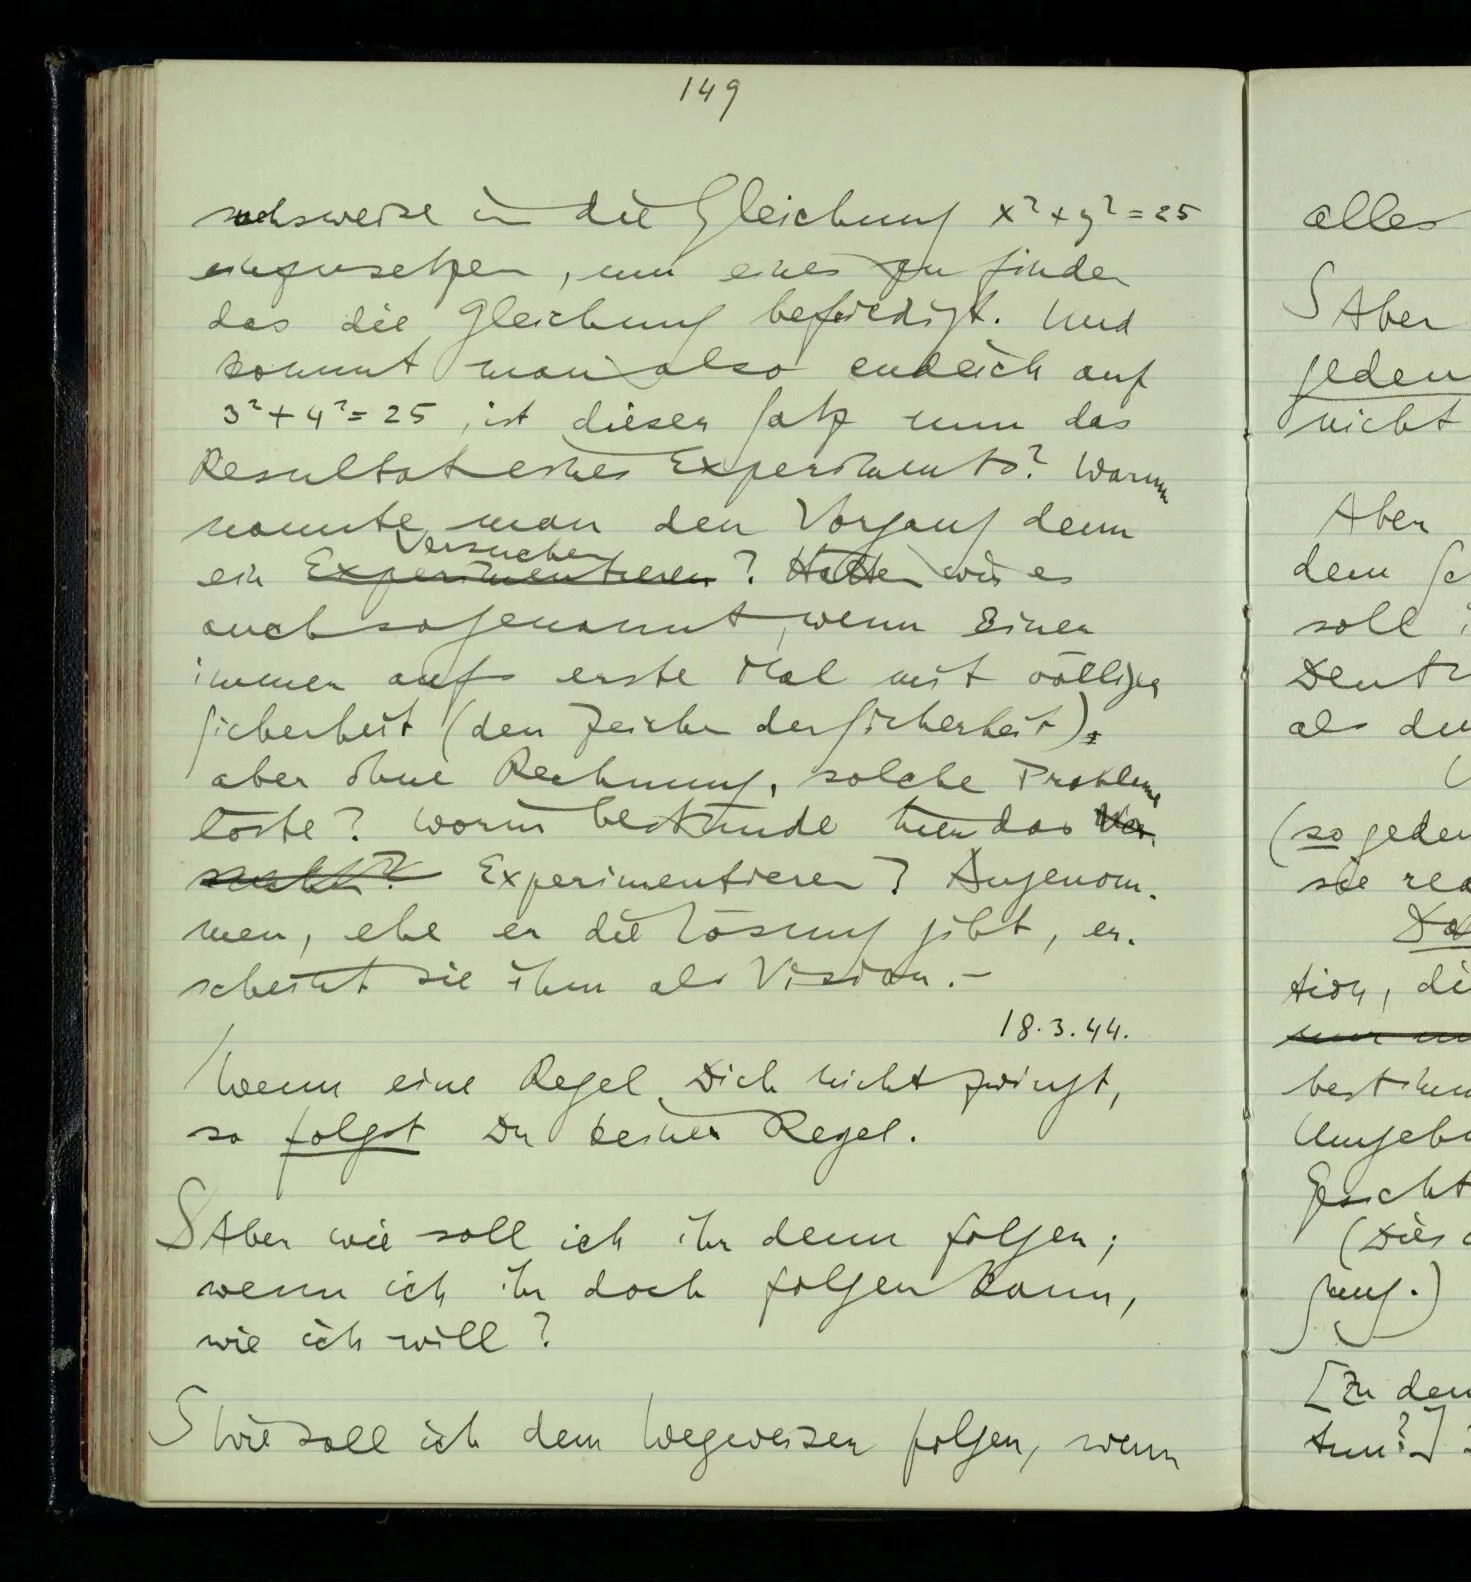 149
suchsweise in die Gleichung x²+y²=25
einzusetzen, um eines zu finden
das die Gleichung befriedigt. Und
kommt man also endlich auf
3²+4²=25, ist dieser Satz nun das
Resultat eines Experiments? Warum
nannte man den Vorgang denn
Versuchen
ein Experimentieren? Hätten wir es
auch so genannt, wenn Einer
immer aufs erste Mal mit völliger
Sicherheit (den Zeichen der Sicherheit),
aber ohne Rechnung, solche Probleme
löste? Worin bestünde hier das Ver-
Experimentieren? Angenom-
men, ehe er die Lösung gibt, er-
scheint sie ihm als Vision. –
18.3.44.
Wenn eine Regel Dich nicht zwingt,
so folgst Du keiner Regel.
S Aber wie soll ich ihr denn folgen;
wenn ich ihr doch folgen kann,
wie ich will?
S Wie soll ich dem Wegweiser folgen, wenn
alles
S Aber
jeden
nicht
Aber
dem
soll
als
(so
sie
tion,
(Dies
[Zu
tun?]